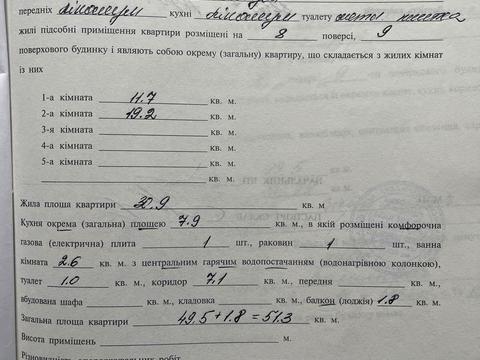 передніх лінолеум кухні лінолеум туалету метл. плитка
жилі підсобні приміщення квартири розміщені на 8 поверсі, 9
поверхового будинку і являють собою окрему (загальну) квартиру, що складається з жилих кімнат
із них
1-а кімната 11.7 кв. м.
2-а кімната 19.2 кв. м.
3-я кімната кв. м.
4-а кімната кв. м.
5-а кімната кв. м.
кв. м.
Жила площа квартири 30.9 кв. м
Кухня окрема (загальна) площею 7.9 кв. м., в якій розміщені комфорочна
газова (електрична) плита 1 шт., раковин 1 шт., ванна
кімната 2.6 кв. м. з центральним гарячим водопостачанням (водонагрівною колонкою),
туалет 1.0 кв. м., коридор 7.1 кв. м., передня кв. м.,
вбудована шафа кв. м., кладовка кв. м., балкон (лоджія) 1.8 кв. м.
Загальна площа квартири 49.5 + 1.8 = 51.3 кв. м.
Висота приміщень м.